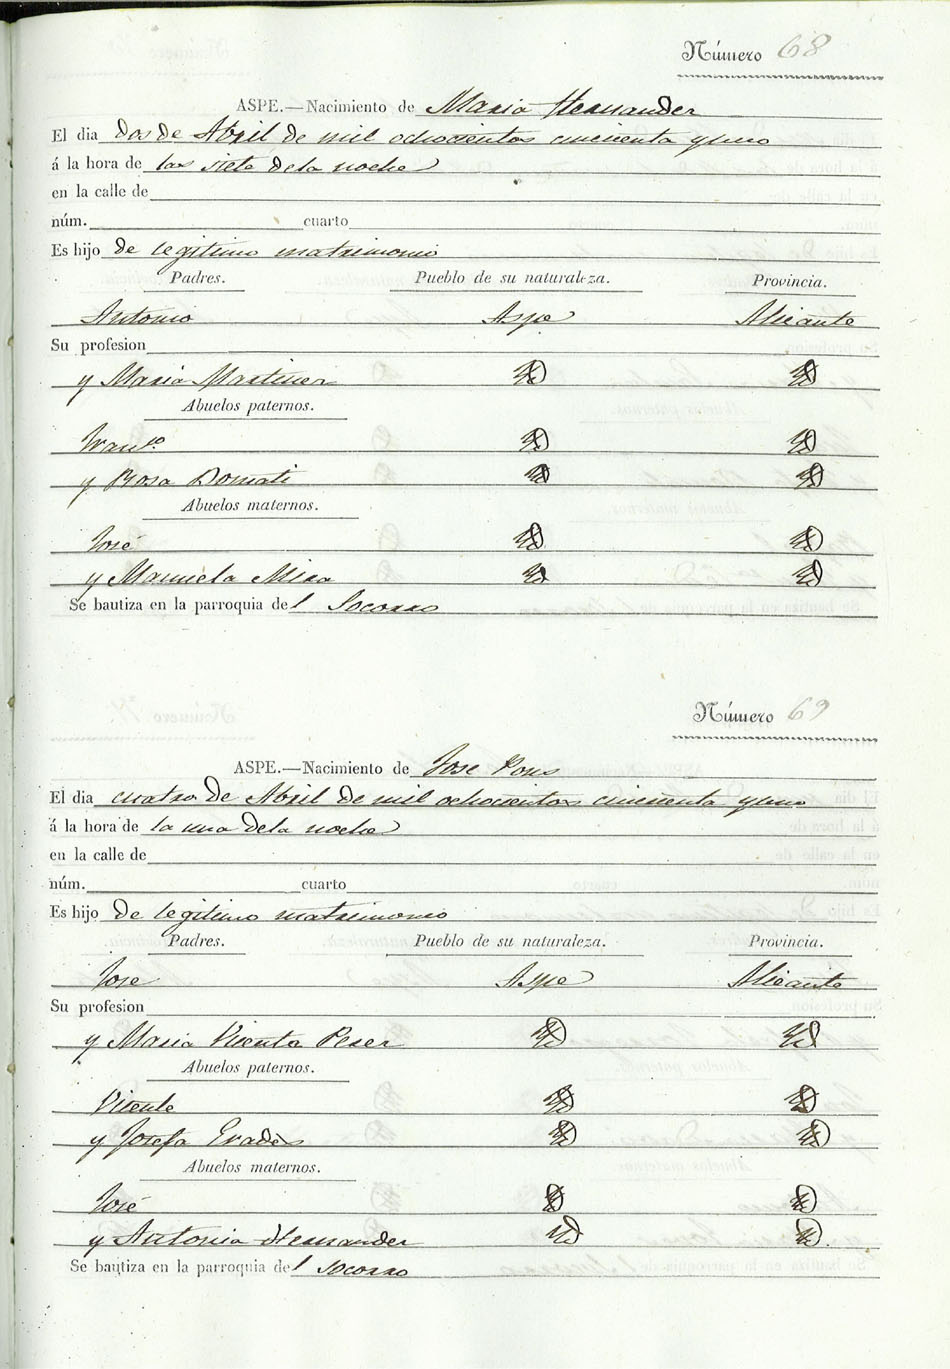 Número 68
ASPE.—Nacimiento de Maria Hernandez
El dia dos de Abril de mil ochocientos cincuenta y uno
á la hora de las siete de la noche
en la calle de
núm. cuarto
Es hijo de legitimo matrimonio
Padres. Pueblo de su naturaleza. Provincia.
Antonio Aspe Alicante
Su profesion
y Maria Martinez
Abuelos paternos.
Franco.
y Rosa
Abuelos maternos.
José
y Manuela Mira
Se bautiza en la parroquia del Socorro
Número 69
ASPE.—Nacimiento de Jose Pons
El dia cuatro de Abril de mil ochocientos cincuenta y uno
á la hora de la una de la noche
en la calle de
núm. cuarto
Es hijo de legitimo matrimonio
Padres. Pueblo de su naturaleza. Provincia.
Jose Aspe Alicante
Su profesion
y Maria Vicenta Perez
Abuelos paternos.
Vicente
y Josefa
Abuelos maternos.
José
y Antonia Hernandez
Se bautiza en la parroquia del Socorro